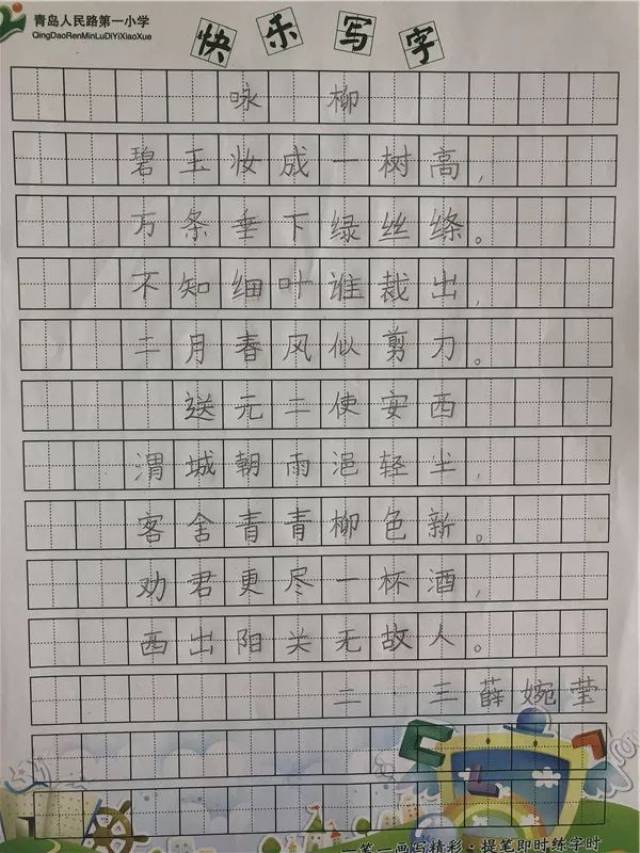 青岛人民路第一小学
QingDaoRenMinLuDiYiXiaoXue
快乐写字
咏柳
碧玉妆成一树高,
万条垂下绿丝绦。
不知细叶谁裁出,
二月春风似剪刀。
送元二使安西
渭城朝雨浥轻尘,
客舍青青柳色新。
劝君更尽一杯酒,
西出阳关无故人。
二 三薛婉莹
一笔一画写精彩·提笔即时练字时